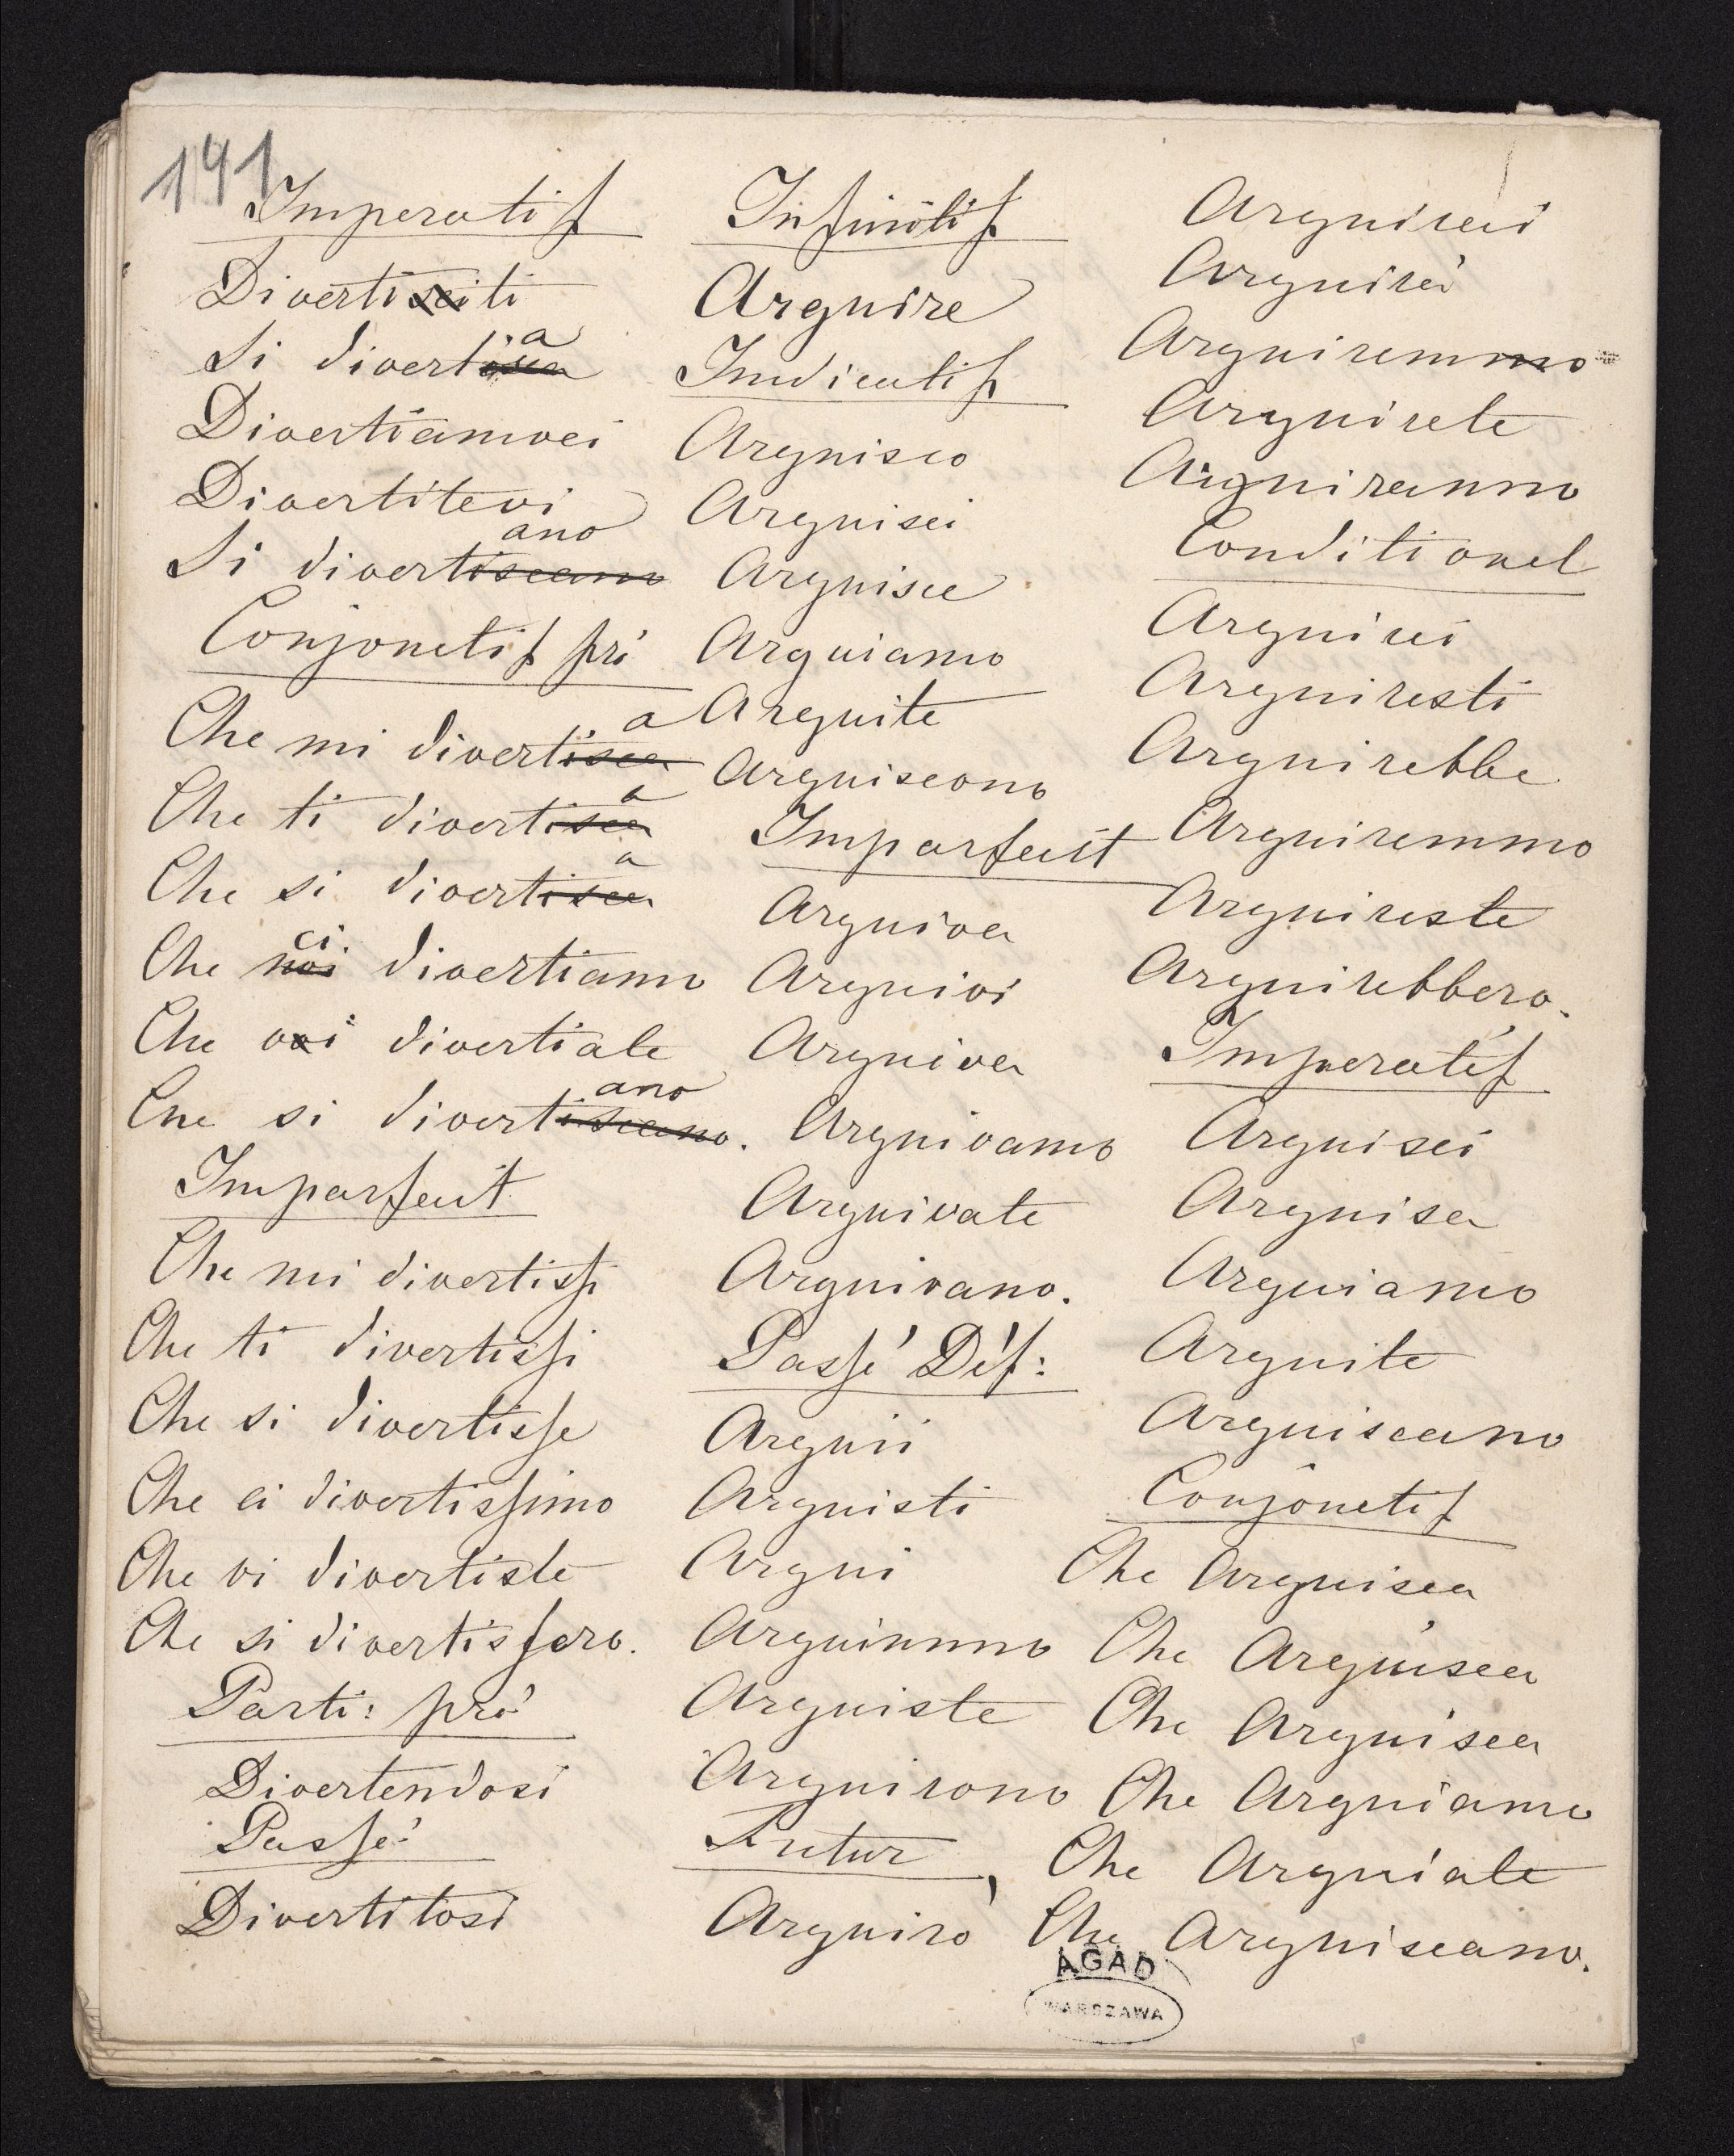 141
Imperatif
Divertisciti
Si divertisca a
Divertiamoci
Divertitevi
Si divertiscano ano
Conjonctif pré
Che mi divertisca a
Che ti divertisca a
Che si divertisca a
Che noi ci divertiamo
Che voi divertiate
Che si divertiscano ano.
Imparfait
Che mi divertissi
Che ti divertissi
Che si divertisse
Che ci divertissimo
Che vi divertiste
Che si divertissero.
Parti: pré
Divertendosi
Passé
Divertitosi
Infinitif
Arguire
Indicatif
Arguisco
Arguisci
Arguisce
Arguiamo
Arguite
Arguiscono
Imparfait
Arguiva
Arguivi
Arguiva
Arguivamo
Arguivate
Arguivano.
Passé Déf:
Arguii
Arguisti
Argui
Arguimmo
Arguiste
Arguirono
Futur
Arguirò
Arguirai
Arguirà
Arguiremmo
Arguirete
Arguiranno
Conditionel
Arguirei
Arguiresti
Arguirebbe
Arguiremmo
Arguireste
Arguirebbero.
Imperatif
Arguisci
Arguisca
Arguiamo
Arguite
Arguiscano
Conjonctif
Che Arguisca
Che Arguisca
Che Arguisca
Che Arguiamo
Che Arguiate
Che Arguiscano.
AGAD
WARSZAWA